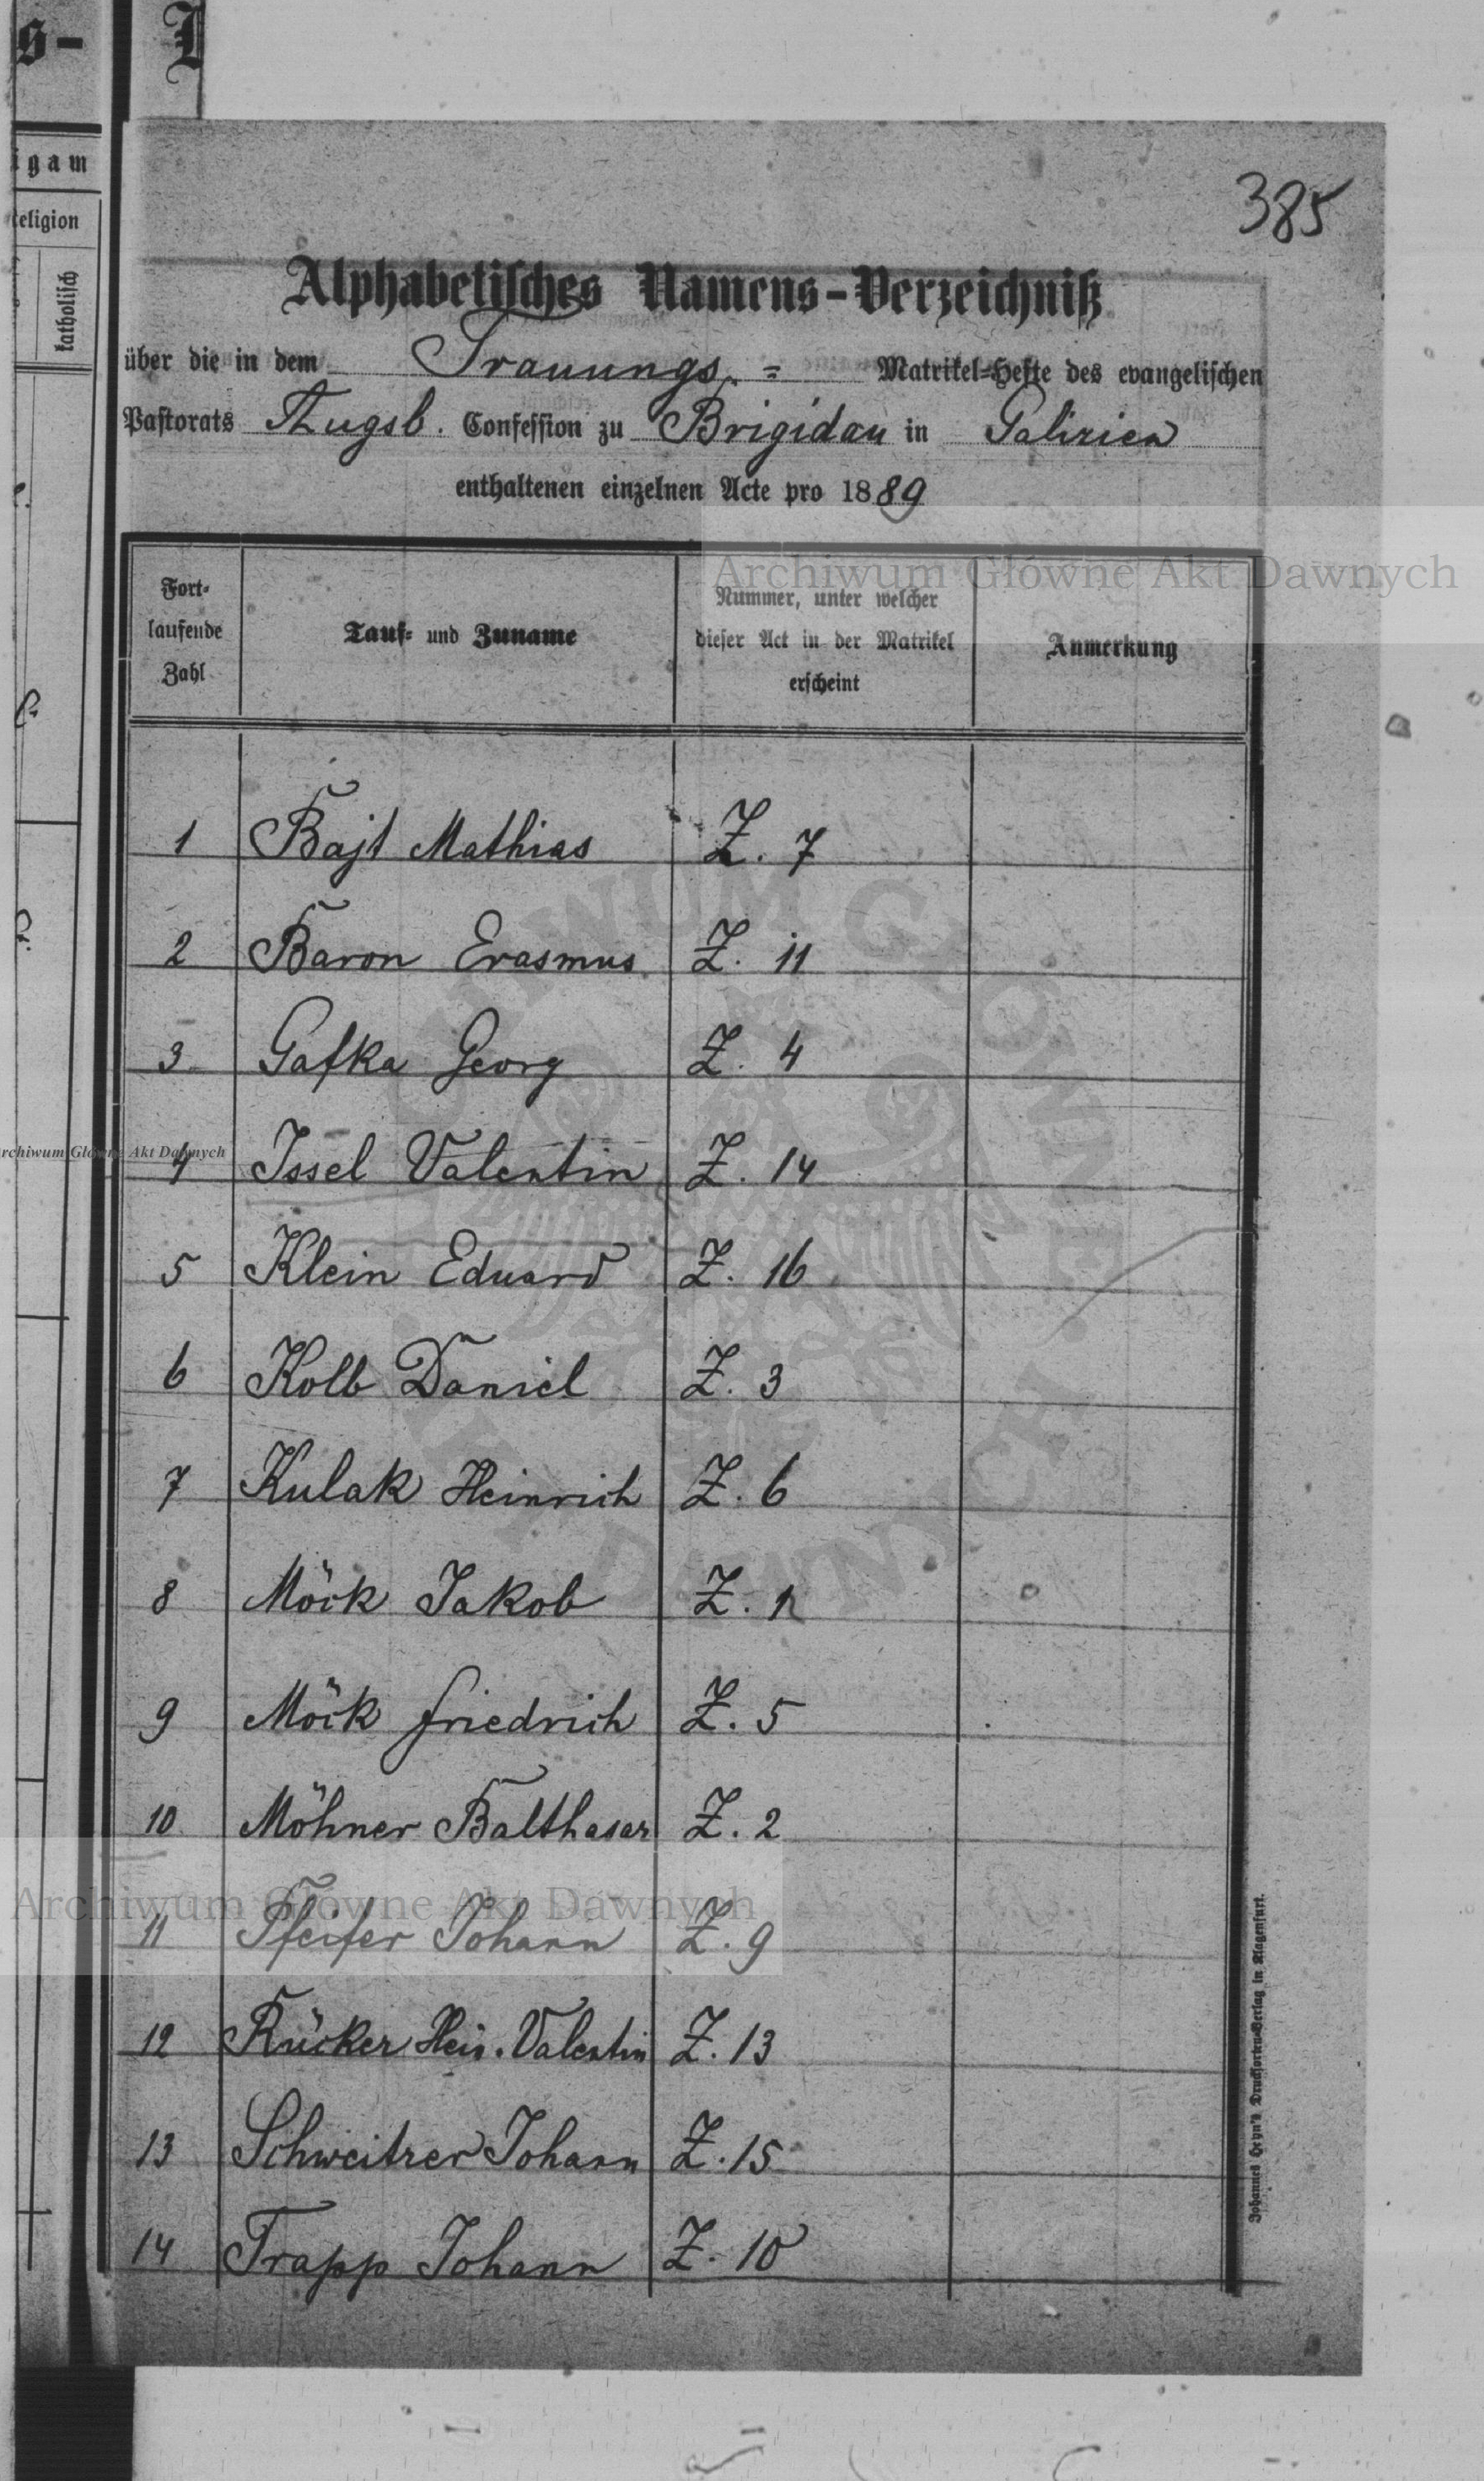 s-
igam
religion
katholisch
385
Alphabetisches Namens-Verzeichniß
über die in dem Trauungs- Matrikel-Hefte des evangelischen
Pastorats Augsb. Confession zu Brigidau in Galizien
enthaltenen einzelnen Acte pro 1889
Archiwum Główne Akt Dawnych
Fort-
laufende
Zahl
Tauf- und Zuname
Nummer, unter welcher
dieser Act in der Matrikel
erscheint
Anmerkung
1 Bajt Mathias Z. 7
2 Baron Erasmus Z. 11
3 Gafka Georg Z. 4
Archiwum Główne Akt Dawnych
4 Issel Valentin Z. 14
5 Klein Eduard Z. 16
6 Kolb Daniel Z. 3
7 Kulak Heinrich Z. 6
8 Möck Jakob Z.
9 Möck Friedrich Z. 5
10 Möhner Balthasar Z. 2
Archiwum Główne Akt Dawnych
11 Pfeifer Johann Z. 9
12 Rücker Hein. Valentin Z. 13
13 Schweitzer Johann Z. 15
14 Trapp Johann Z. 10
Johannes Heyn's Drucksorten-Verlag in Klagenfurt.
ARCHIWUM GŁÓWNE AKT DAWNYCH